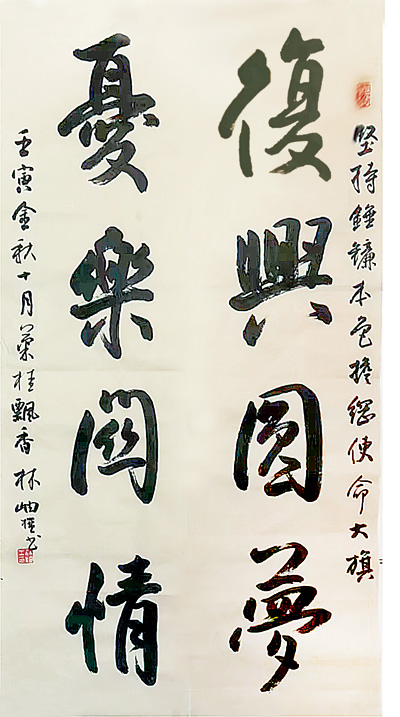 坚持錘鐮本色擔綱使命大旗
復興圓夢
憂樂關情
壬寅金秋十月叢桂飄香林岫書